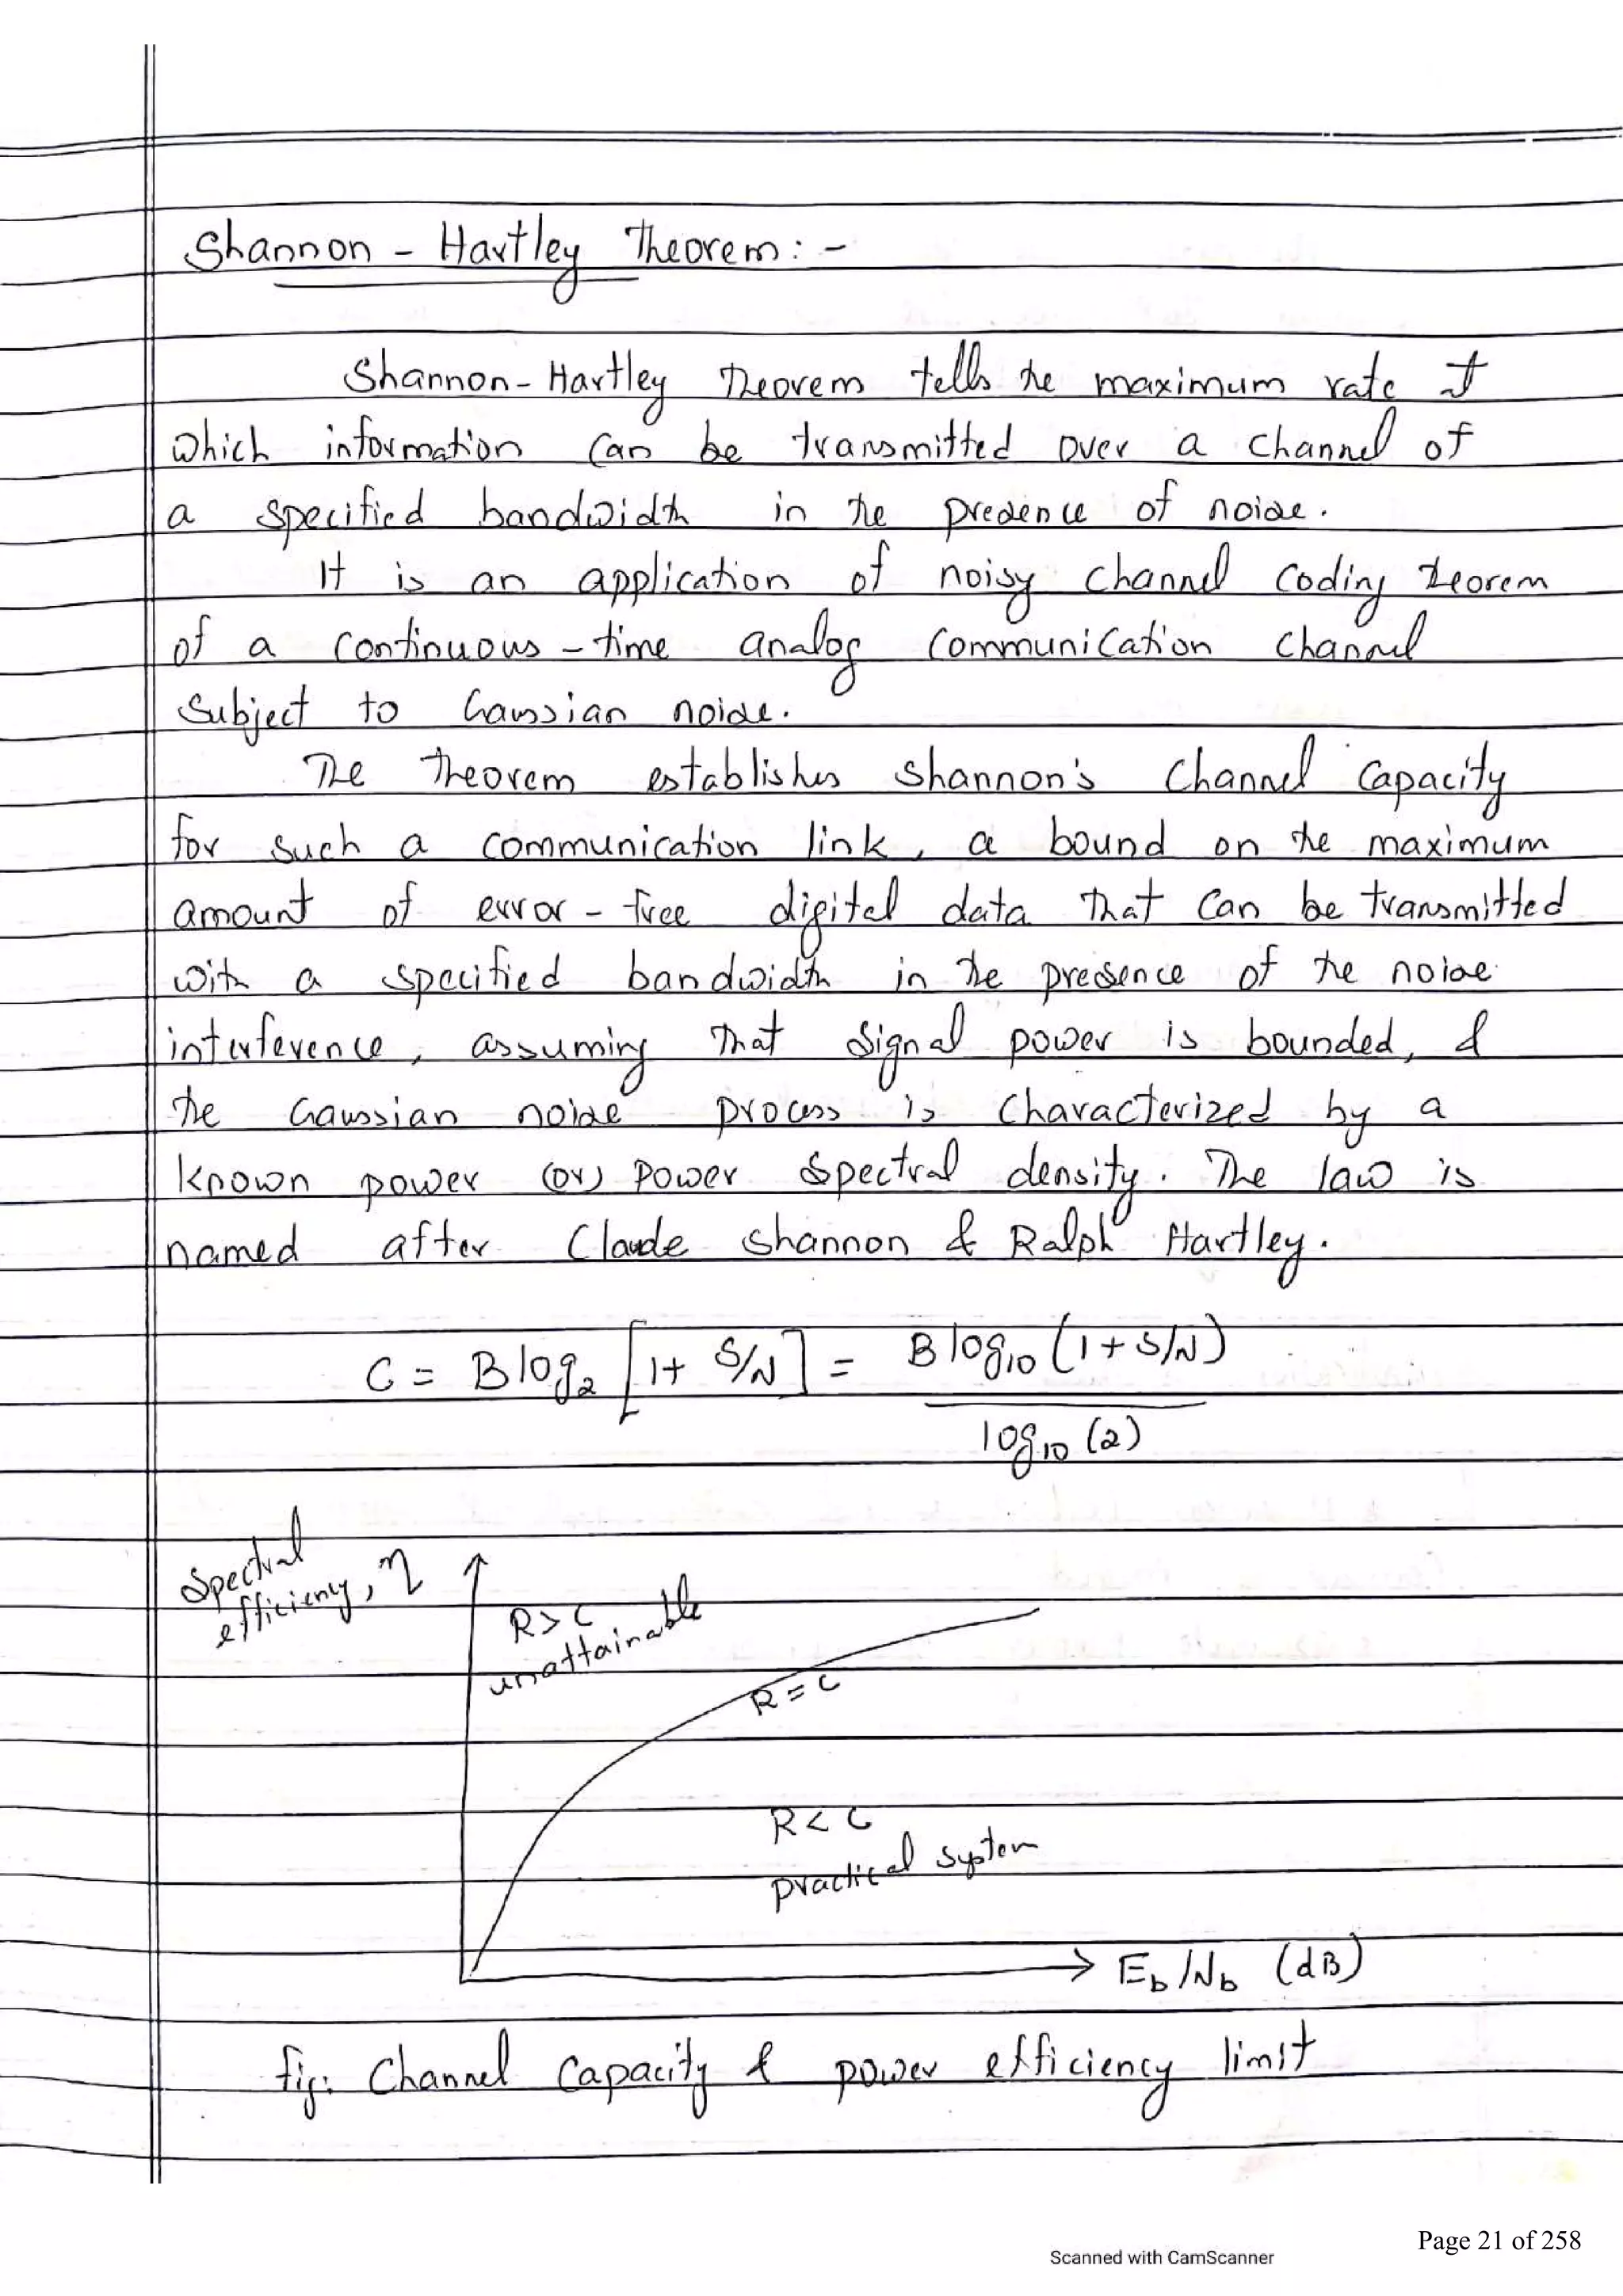 Shannon - Hartley Theorem : -
Shannon - Hartley Theorem tells the maximum rate at
which information can be transmitted over a channel of
a specified bandwidth in the presence of noise.
It is an application of noisy channel coding theorem
of a continuous - time analog communication channel
subject to Gaussian noise.
The theorem establishes Shannon's channel capacity
for such a communication link, a bound on the maximum
amount of error - free digital data that can be transmitted
with a specified bandwidth in the presence of the noise
interference, assuming that signal power is bounded, &
the Gaussian noise process is characterized by a
known power (or) power spectral density. The law is
named after Claude Shannon & Ralph Hartley.
C = B log₂ [1 + S/N] = B log₁₀ (1 + S/N)
log₁₀ (2)
Spectral
efficiency, η
R > C
unattainable
R = C
R < C
practical system
→ E_b / N_b (dB)
fig: Channel capacity & power efficiency limit
Page 21 of 258
Scanned with CamScanner